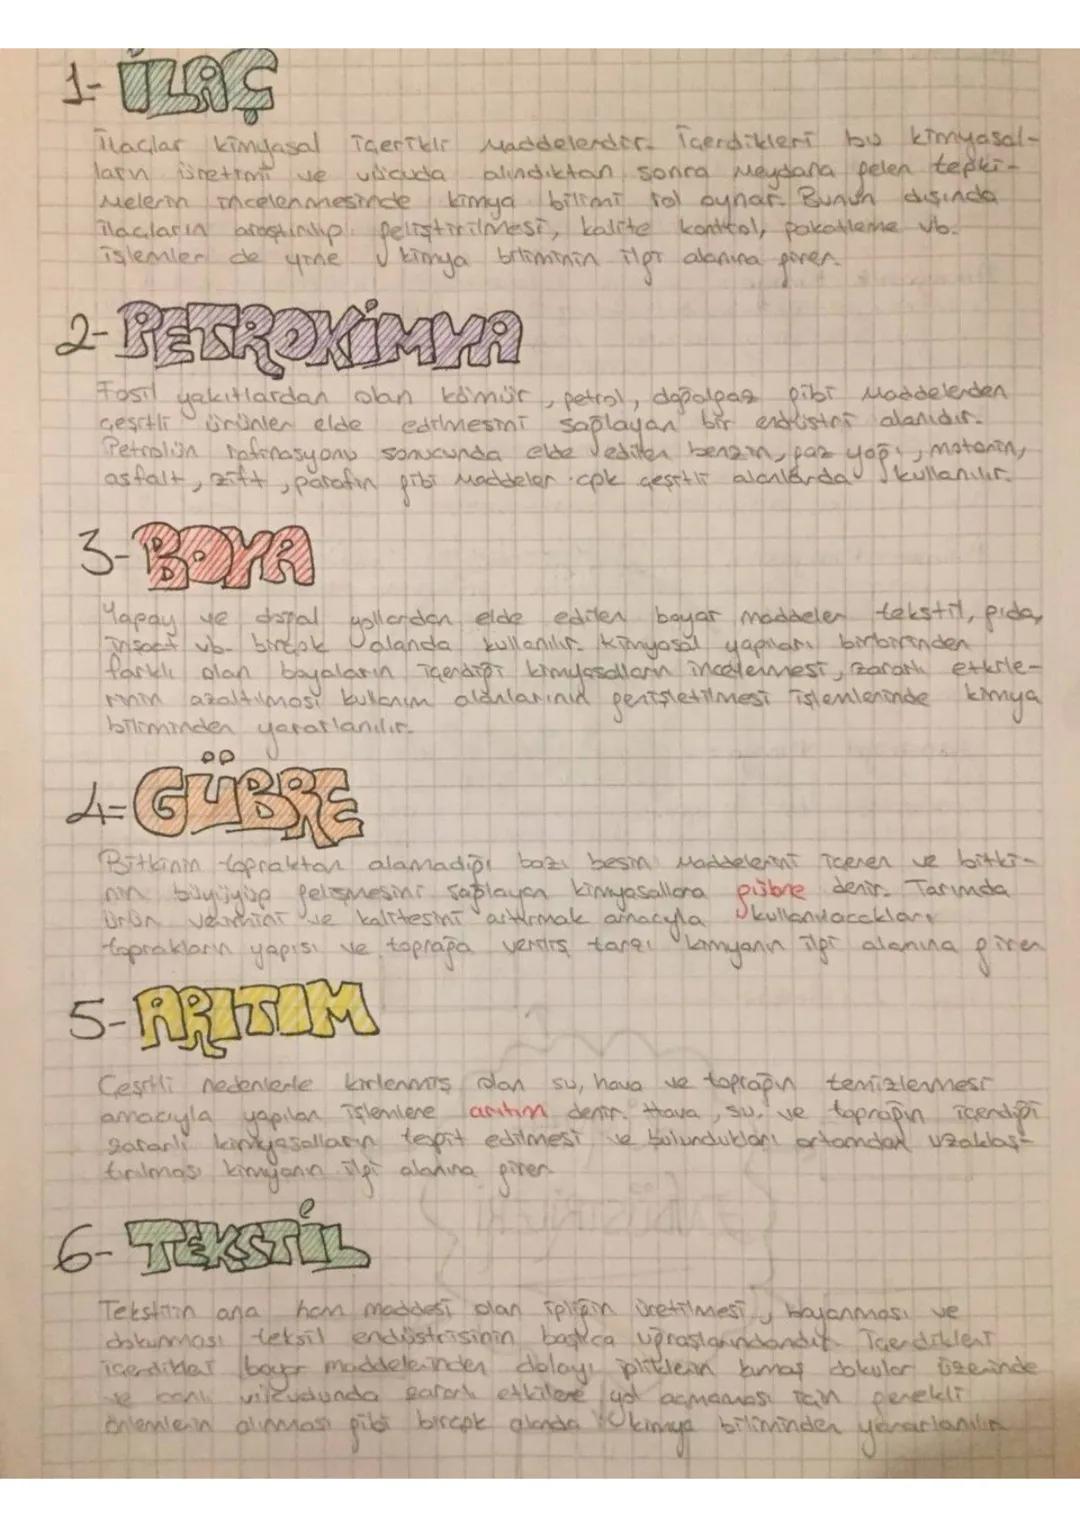 1- İLAÇ
İlaçlar kimyasal içerikli maddelerdir. İçerdikleri bu kimyasal-
ların üretimi ve vücuda alındıktan sonra meydana gelen tepki-
melerin incelenmesinde kimya bilimi rol oynar. Bunun dışında
ilaçların araştırılıp geliştirilmesi, kalite kontrol, paketleme vb.
işlemler de yine kimya biliminin ilgi alanına girer.
2- PETROKİMYA
Fosil yakıtlardan olan kömür, petrol, doğalgaz gibi maddelerden
çeşitli ürünler elde edilmesini sağlayan bir endüstri alanıdır.
Petrolün rafinasyonu sonucunda elde edilen benzin, gaz yağı, motorin,
asfalt, zift, parafin gibi maddeler çok çeşitli alanlarda kullanılır.
3- BOYA
Yapay ve doğal yollardan elde edilen boyar maddeler tekstil, gıda,
inşaat vb. birçok alanda kullanılır. Kimyasal yapıları birbirinden
farklı olan boyaların içerdiği kimyasalların incelenmesi, zararlı etkile-
rinin azaltılması kullanım alanlarının genişletilmesi işlemlerinde kimya
biliminden yararlanılır.
4- GÜBRE
Bitkinin topraktan alamadığı bazı besin maddelerini içeren ve bitki-
nin büyüyüp gelişmesini sağlayan kimyasallara gübre denir. Tarımda
ürün verimini ve kalitesini artırmak amacıyla kullanılacakları
toprakların yapısı ve toprağa veriliş tarzı kimyanın ilgi alanına girer
5- ARITIM
Çeşitli nedenlerle kirlenmiş olan su, hava ve toprağın temizlenmesi
amacıyla yapılan işlemlere arıtım denir. Hava, su ve toprağın içerdiği
zararlı kimyasalların tespit edilmesi ve bulundukları ortamdan uzaklaş-
tırılması kimyanın ilgi alanına girer.
6- TEKSTİL
Tekstilin ana ham maddesi olan ipliğin üretilmesi, boyanması ve
dokunması teksil endüstrisinin başlıca uğraşlarındandır. İçerdikleri
içerdikler boyar maddelerinden dolayı ipliklerin kumaş dokular üzerinde
ve canlı vücudunda zararlı etkilere yol açmaması için gerekli
önlemlerin alınması gibi birçok alanda kimya biliminden yararlanılır